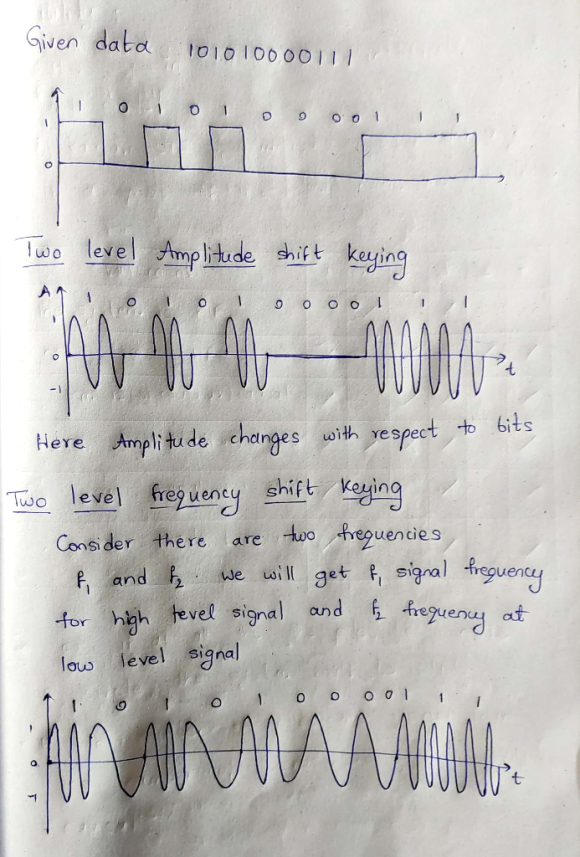 Given data 101010000111
1 0 1 0 1 0 0 0 0 1 1 1
1
0
Two level Amplitude shift keying
A 1 0 1 0 1 0 0 0 0 1 1 1
1
0
t
-1
Here Amplitude changes with respect to bits
Two level frequency shift keying
Consider there are two frequencies
f₁ and f₂. we will get f₁ signal frequency
for high level signal and f₂ frequency at
low level signal
1 0 1 0 1 0 0 0 0 1 1 1
1
0
t
-1